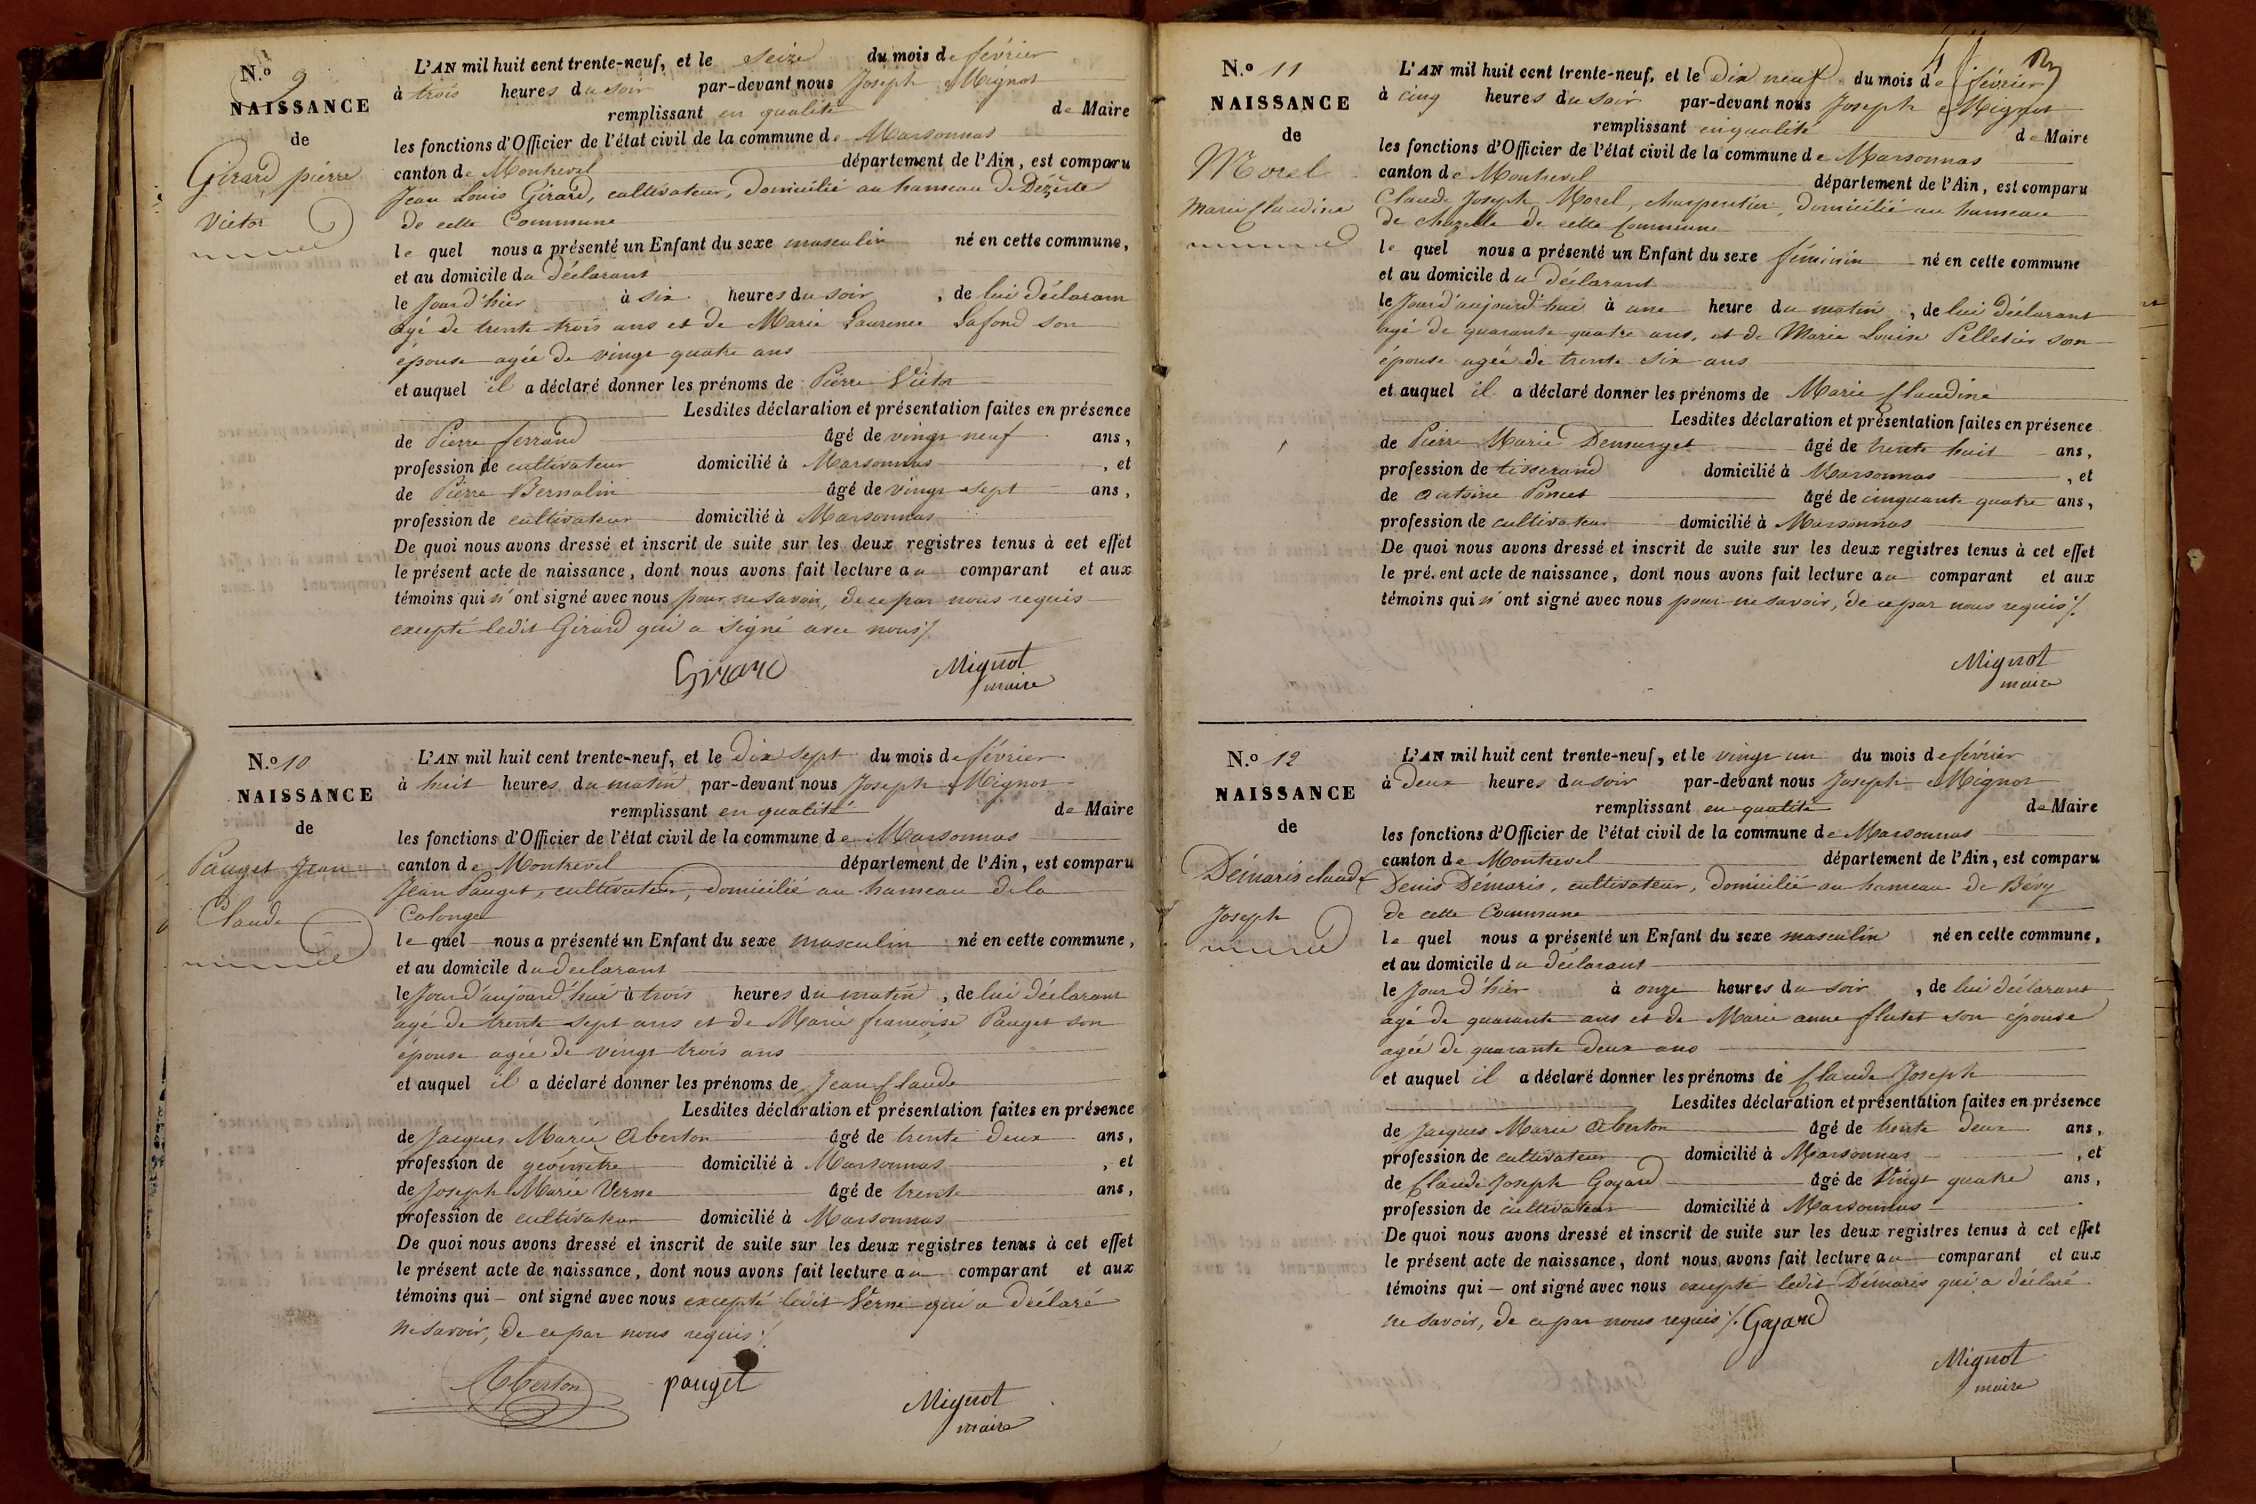 N.º 9
NAISSANCE
de
Girard pierre
Victor
L'AN mil huit cent trente-neuf, et le seize du mois de février
à trois heures du soir par-devant nous Joseph Mignot
remplissant en qualité de Maire
les fonctions d'Officier de l'état civil de la commune de Marsonnas
canton de Montrevel département de l'Ain, est comparu
Jean Louis Girard, cultivateur, domicilié au hameau de Dézerte
de cette Commune
le quel nous a présenté un Enfant du sexe masculin né en cette commune,
et au domicile du déclarant
le Jour d'hier à six heures du soir, de lui déclarant
agé de trente trois ans et de Marie Laurence Lafond son
épouse agée de vingt quatre ans
et auquel il a déclaré donner les prénoms de Pierre Victor
Lesdites déclaration et présentation faites en présence
de Pierre ferrand âgé de vingt neuf ans,
profession de cultivateur domicilié à Marsonnas, et
de Pierre Bernalin âgé de vingt sept ans,
profession de cultivateur domicilié à Marsonnas
De quoi nous avons dressé et inscrit de suite sur les deux registres tenus à cet effet
le présent acte de naissance, dont nous avons fait lecture au comparant et aux
témoins qui n'ont signé avec nous pour ne savoir, de ce par nous requis
excepté ledit Girard qui a signé avec nous ./.
Girard Mignot
maire
N.º 10
NAISSANCE
de
Pauget Jean
Claude
L'AN mil huit cent trente-neuf, et le dix sept du mois de février
à huit heures du matin par-devant nous Joseph Mignot
remplissant en qualité de Maire
les fonctions d'Officier de l'état civil de la commune de Marsonnas
canton de Montrevel département de l'Ain, est comparu
Jean Pauget, cultivateur, domicilié au hameau de la
Colonge
le quel nous a présenté un Enfant du sexe masculin né en cette commune,
et au domicile du declarant
le Jour d'aujourd'hui à trois heures du matin, de lui déclarant
agé de trente sept ans et de Marie françoise Pauget son
épouse agée de vingt trois ans
et auquel il a déclaré donner les prénoms de Jean Claude
Lesdites déclaration et présentation faites en présence
de Jacques Marie Aberton âgé de trente deux ans,
profession de géomètre domicilié à Marsonnas, et
de Joseph Marie Verne âgé de trente ans,
profession de cultivateur domicilié à Marsonnas
De quoi nous avons dressé et inscrit de suite sur les deux registres tenus à cet effet
le présent acte de naissance, dont nous avons fait lecture au comparant et aux
témoins qui ont signé avec nous excepté ledit Verne qui a déclaré
ne savoir, de ce par nous requis ./.
Aberton pauget Mignot
maire
N.º 11
NAISSANCE
de
Morel
Marie Claudine
L'AN mil huit cent trente-neuf, et le Dix neuf du mois de février
à cinq heures du soir par-devant nous Joseph Mignot
remplissant en qualité de Maire
les fonctions d'Officier de l'état civil de la commune de Marsonnas
canton de Montrevel département de l'Ain, est comparu
Claude Joseph Morel, charpentier, domicilié au hameau
de chazelle de cette Commune
le quel nous a présenté un Enfant du sexe féminin né en cette commune
et au domicile du déclarant
le Jour d'aujourd'hui à une heure du matin, de lui déclarant
agé de quarante quatre ans, et de Marie Louise Pelletier son
épouse agée de trente six ans
et auquel il a déclaré donner les prénoms de Marie Claudine
Lesdites déclaration et présentation faites en présence
de Pierre Marie Demurget âgé de trente huit ans,
profession de tisserand domicilié à Marsonnas, et
de antoine Poncet âgé de cinquante quatre ans,
profession de cultivateur domicilié à Marsonnas
De quoi nous avons dressé et inscrit de suite sur les deux registres tenus à cet effet
le pré.ent acte de naissance, dont nous avons fait lecture au comparant et aux
témoins qui n'ont signé avec nous pour ne savoir, de ce par nous requis ./.
Mignot
maire
N.º 12
NAISSANCE
de
Démaris claude
Joseph
L'AN mil huit cent trente-neuf, et le vingt un du mois de février
à deux heures du soir par-devant nous Joseph Mignot
remplissant en qualité de Maire
les fonctions d'Officier de l'état civil de la commune de Marsonnas
canton de Montrevel département de l'Ain, est comparu
Denis Démaris, cultivateur, domicilié au hameau de Bévy
de cette Commune
le quel nous a présenté un Enfant du sexe masculin né en cette commune,
et au domicile du déclarant
le Jour d'hier à onze heures du soir, de lui déclarant
agé de quarante ans et de Marie anne flutet son épouse
agée de quarante deux ans
et auquel il a déclaré donner les prénoms de Claude Joseph
Lesdites déclaration et présentation faites en présence
de Jacques Marie Aberton âgé de trente deux ans,
profession de cultivateur domicilié à Marsonnas, et
de Claude Joseph Goyard âgé de Vingt quatre ans,
profession de cultivateur domicilié à Marsonnas
De quoi nous avons dressé et inscrit de suite sur les deux registres tenus à cet effet
le présent acte de naissance, dont nous avons fait lecture au comparant et aux
témoins qui ont signé avec nous excepté ledit Démaris qui a déclaré
ne savoir, de ce par nous requis ./. Goyard
Mignot
maire